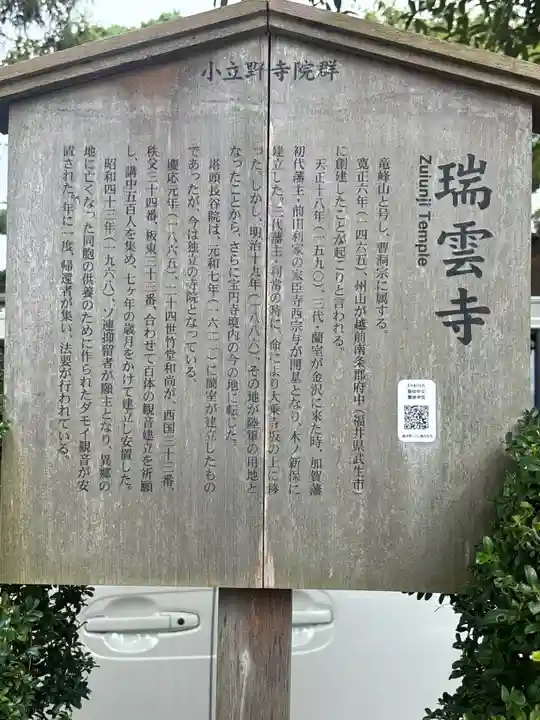 小立野寺院群
瑞雲寺
Zuiunji Temple
竜峰山と号し、曹洞宗に属する。
寛正六年(一四六五)、州山が越前南条郡府中(福井県武生市)
に創建したことが起こりと言われる。
天正十八年(一五九〇)、三代・蘭室が金沢に来た時、加賀藩
初代藩主・前田利家の家臣寺西宗与が開基となり、木ノ新保に
建立した。三代藩主・利常の時に、命により大乗寺坂の上に移
った。しかし、明治十九年(一八八六)、その地が陸軍の用地と
なったことから、さらに宝円寺境内の今の地に転じた。
塔頭長谷院は、元和七年(一六二一)に蘭室が建立したもの
であったが、今は独立の寺院となっている。
慶応元年(一八六五)、二十四世竹堂和尚が、西国三十三番、
秩父三十四番、板東三十三番、合わせて百体の観音建立を祈願
し、講中五百人を集め、七ヶ年の歳月をかけて建立し安置した。
昭和四十三年(一九六八)、ソ連抑留者が願主となり、異郷の
地に亡くなった同胞の供養のために作られたダモイ観音が安
置された。年に一度、帰還者が集い、法要が行われている。
English